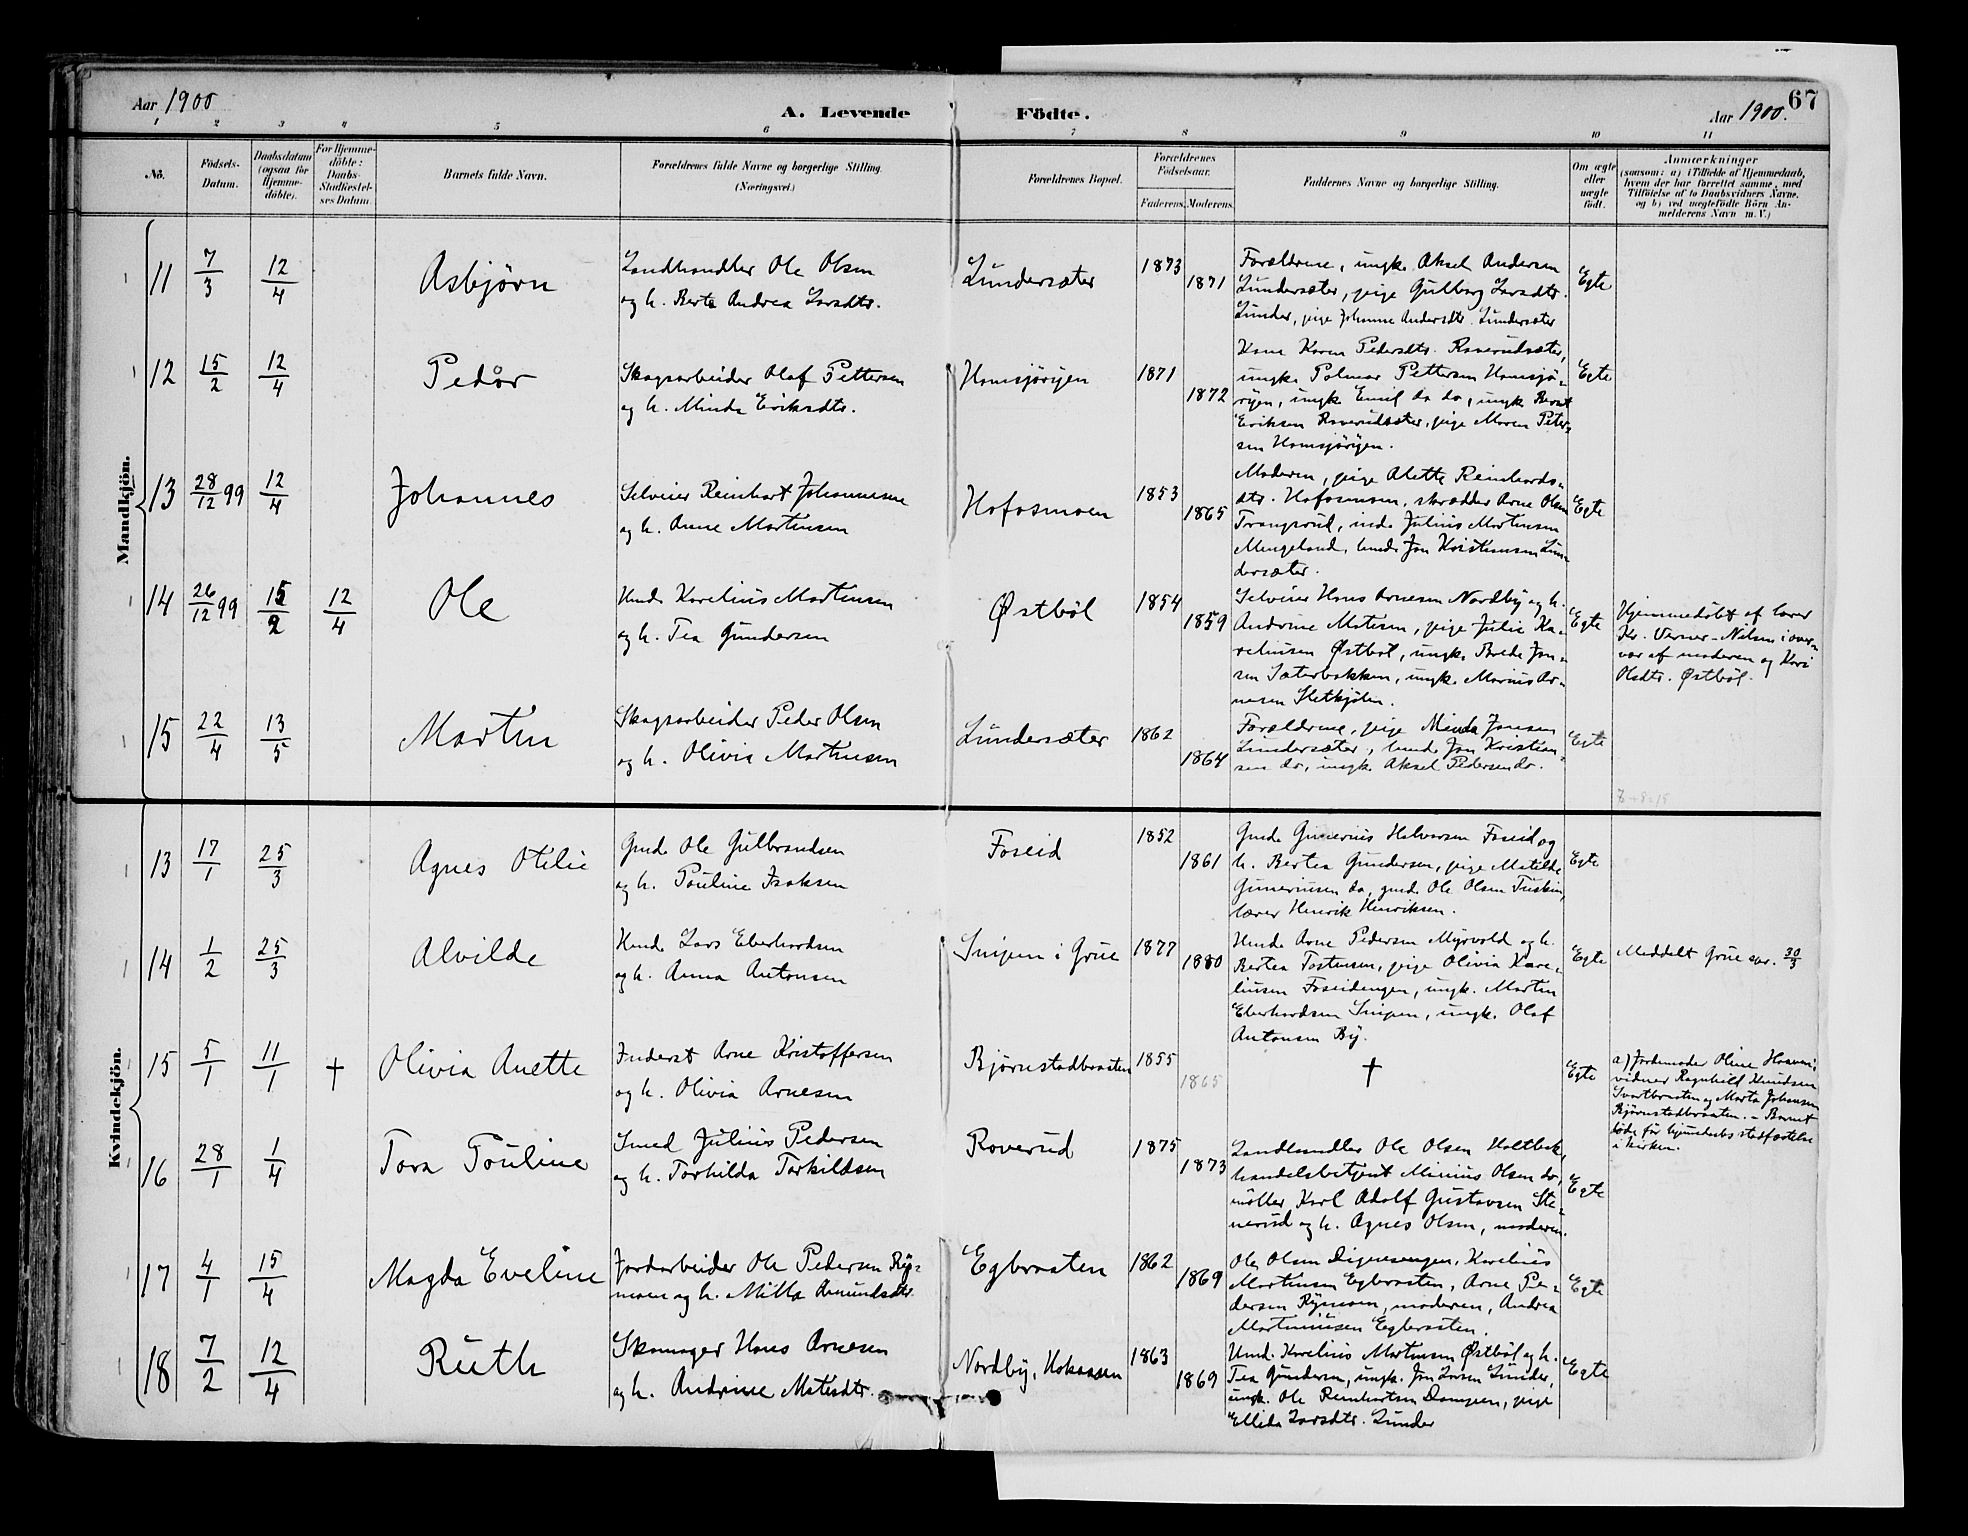 Aar 1900
A. Levende Födte.
Aar 1900.
67
1 2 3 4 5 6 7 8 9 10 11
No.
Födsels-Datum.
Daabsdatum (ogsaa for Hjemme-döbte).
For Hjemme-döbte: Daabs-Stadfæstel-ses Datum.
Barnets fulde Navn.
Forældrenes fulde Navne og borgerlige Stilling.
(Næringsvei.)
Forældrenes Bopæl.
Forældrenes Födselsaar.
Faderens. Moderens.
Faddernes Navne og borgerlige Stilling.
Om ægte eller uægte födt.
Anmærkninger
(saasom: a) i Tilfælde af Hjemmedaab,
hvem der har forrettet samme, med
Tilföielse af to Daabsvidners Navne.
og b) ved uægtefödte Börn An-
melderens Navn m. V.)
Mandkjön.
11 7/3 12/4 Asbjørn
Landhandler Ole Olsen
og h. Berte Andrea Larsdtr.
Lundersæter 1873 1871
Forældrene, ungk. Aksel Andersen
Lundersæter, pige Gulborg Larsdtr.
Lunder, pige Johanne Andersdtr. Lundersæter
Egte
12 15/2 12/4 Peder
Skogsarbeider Olaf Pettersen
og h. Minda Eriksdtr.
Homsjøryen 1871 1872
Kone Karen Pedersdtr. Roverudsæter,
ungk. Palmar Pettersen Homsjø-
ryen, ungk. Emil do do, ungk. Bernt
Eriksen Roverudsæter, pige Maren Peter-
sen Homsjøryen.
Egte
13 28/12 99 12/4 Johannes
Selveier Reinhart Johannesen
og h. Anne Martinsen
Hofosmoen 1853 1865
Moderen, pige Alette Reinhards-
dtr. Hofosmoen, skrædder Arne Olsen
Trangsrud, inds. Julius Martinsen
Mengeland, huusm. Jon Kristiansen Lun-
dersæter.
Egte
14 26/12 99 15/2 12/4 Ole
Husm. Karelius Martinsen
og h. Tea Gundersen
Østbøl 1854 1859
Selveier Hans Arnesen Nordby og h.
Andrine Matesen, pige Julie Ka-
reliusen Østbøl, ungk. Brede Jon-
sen Sæterbakken, ungk. Marius Ar-
nesen Sletkjølen.
Egte
Hjemmedøbt af lærer
Kr. Verner-Nilsen i over-
vær af moderen og Kari
Olsdtr. Østbøl.
15 22/4 13/5 Martin
Skogsarbeider Peder Olsen
og h. Olivia Martinsen
Lundersæter 1862 1864
Forældrene, pige Minda Jonsen
Lundersæter, husm. Jon Kristian-
sen do, ungk. Aksel Pedersen do.
Egte
Kvindekjön.
13 17/1 25/3 Agnes Otilie
Gmd. Ole Gulbrandsen
og h. Pouline Isaksen
Foseid 1852 1861
Gmd. Gunerius Halvorsen Foseid og
h. Bertea Gundersen, pige Matilde
Guneriusen do, gmd. Ole Olsen Tuskin,
lærer Henrik Henriksen.
Egte
14 1/2 25/3 Alvilde
Husm. Lars Eberhardsen
og h. Anna Antonsen
Snipen i Grue 1877 1880
Husm. Arne Pedersen Myrvold og h.
Bertea Tostensen, pige Olivia Kare-
liusen Foseidengen, ungk. Martin
Eberhardsen Snipen, ungk. Olaf
Antonsen By.
Egte
Meddelt Grue spr. 30/3
15 5/1 11/1 † Olivia Anette
Inderst Arne Kristoffersen
og h. Olivia Arnesen
Bjørnstadbraaten 1855 1865
†
Egte
a) Jordemoder Oline Hosveen,
vidner Ragnhild Knudsen
Svartbraaten og Marta Johansen
Bjørnstadbraaten. - Barnet
døde før hjemdaabs stadfæstelse
i kirken.
16 28/1 1/4 Tora Pouline
Smed Julius Pedersen
og h. Torhilda Torkildsen
Roverud 1875 1873
Landhandler Ole Olsen Holtbek,
handelsbetjent Minius Olsen do,
møller Karl Adolf Gustavsen Ste-
nerud og h. Agnes Olsen, moderen.
Egte
17 4/1 15/4 Magda Eveline
Jordarbeider Ole Pedersen Ryg-
moen og h. Milla Amundsdtr.
Egbraaten 1862 1869
Ole Olsen Digerengen, Karelius
Martinsen Egbraaten, Arne Pe-
dersen Rymoen, moderen, Andrea
Martiniusen Egbraaten.
Egte
18 7/2 12/4 Ruth
Skomager Hans Arnesen
og h. Andrine Matisdtr.
Nordby, Hokaasen 1863 1869
Husm. Karelius Martinsen Østbøl og h.
Tea Gundersen, ungk. Jon Larsen Lunder,
ungk. Ole Reinhartsen Dampen, pige
Ellida Larsdtr. Lunder
Egte